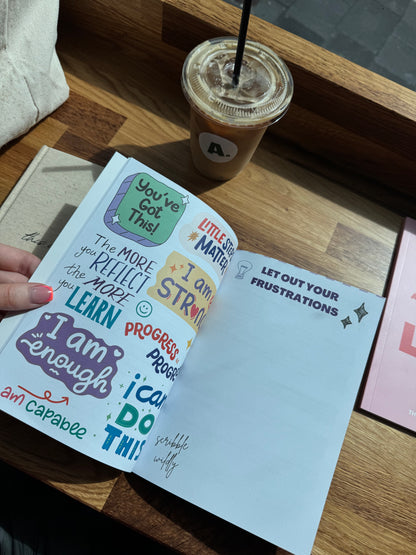 A.
You've
Got
This!
LITTLE STEP
MATTER
The MORE
you REFLECT
the MORE
you LEARN
I am
STRONG
PROGRESS
PROGR
I am
enough
i can
DO
THIS
am capable
LET OUT YOUR
FRUSTRATIONS
scribble
wildly